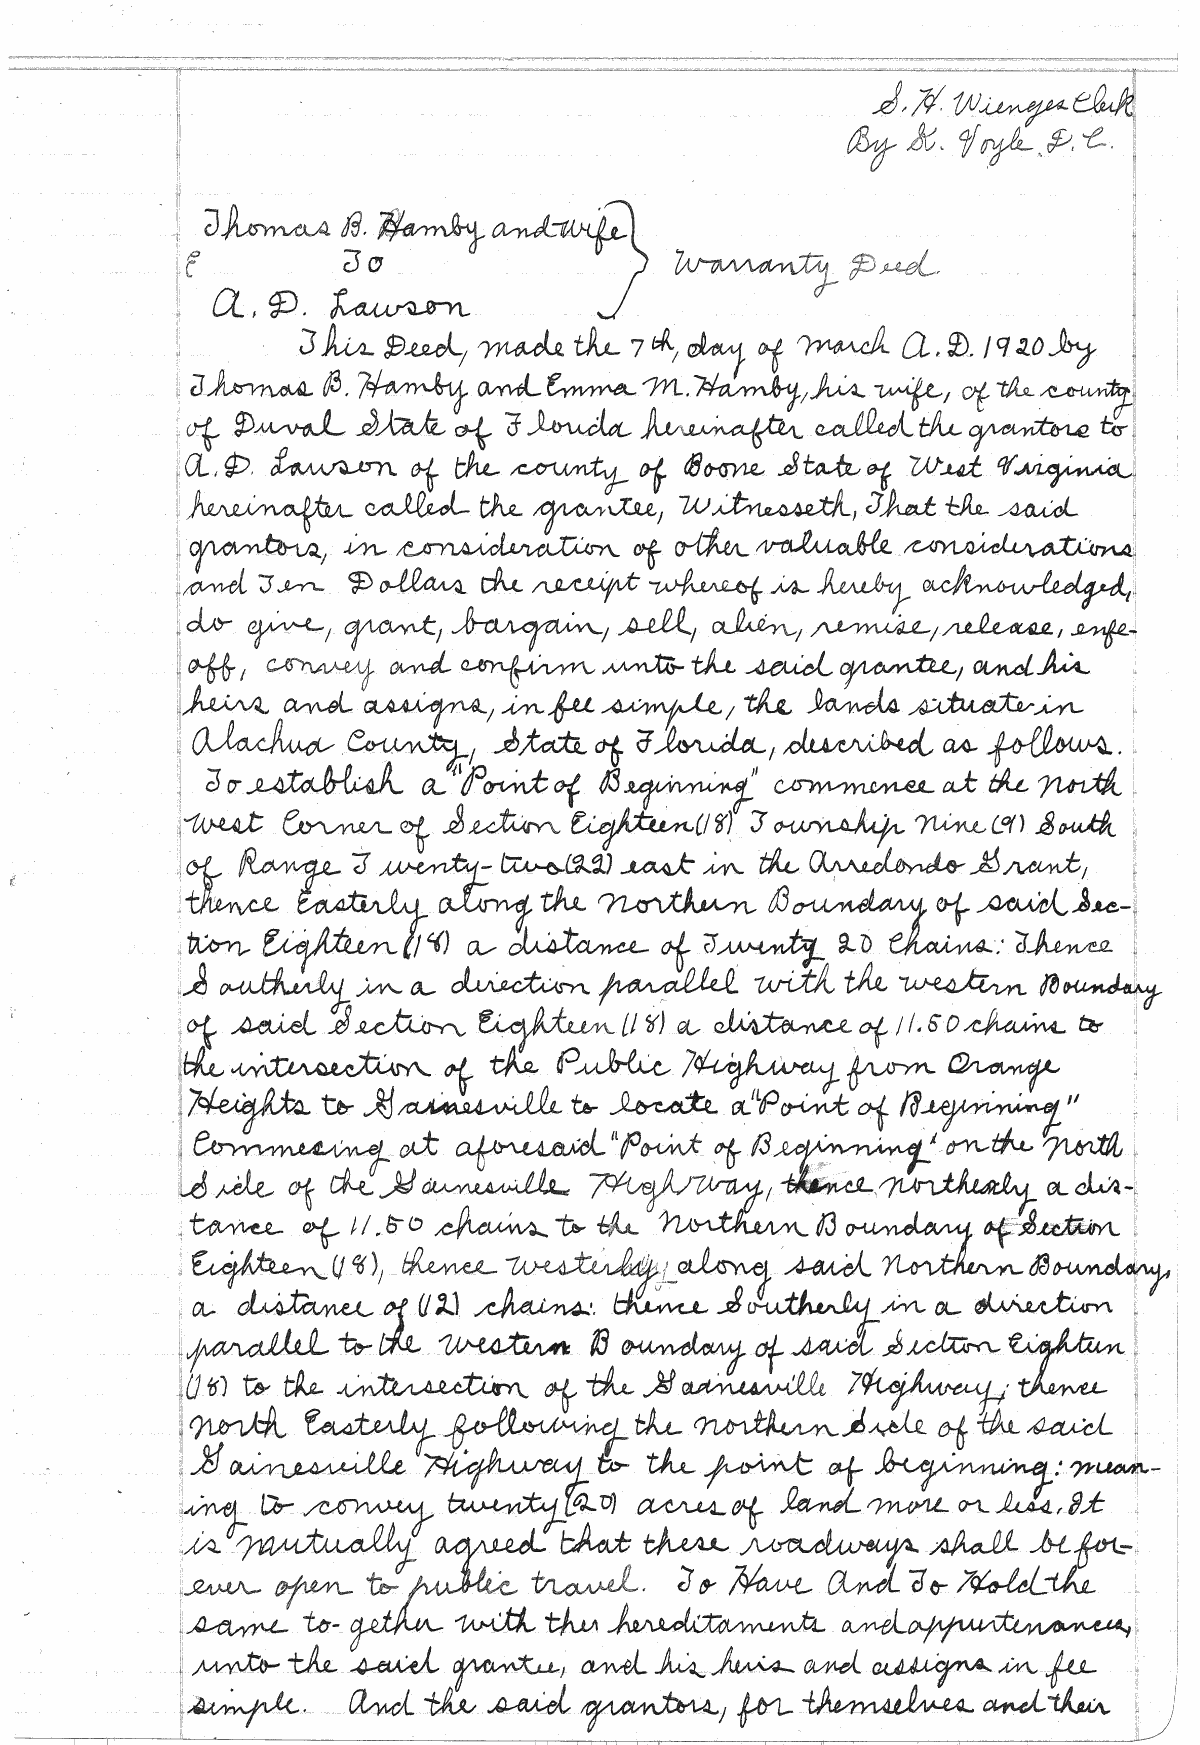 S. H. Wienges Clerk
By K. Voyle D.C.
Thomas B. Hamby and wife
To
Warranty Deed.
A. D. Lawson
This Deed, made the 7th, day of March A.D. 1920 by
Thomas B. Hamby and Emma M. Hamby, his wife, of the county
of Duval State of Florida hereinafter called the grantors to
A.D. Lawson of the county of Boone State of West Virginia
hereinafter called the grantee, Witnesseth, That the said
grantors, in consideration of other valuable considerations
and Ten Dollars the receipt whereof is hereby acknowledged,
do give, grant, bargain, sell, alien, remise, release, enfe-
off, convey and confirm unto the said grantee, and his
heirs and assigns, in fee simple, the lands situate in
Alachua County, State of Florida, described as follows.
To establish a "Point of Beginning" commence at the North
West Corner of Section Eighteen (18) Township Nine (9) South
of Range Twenty-two (22) east in the Arredondo Grant,
thence Easterly along the Northern Boundary of said Sec-
tion Eighteen (18) a distance of Twenty 20 Chains: Thence
Southerly in a direction parallel with the western Boundary
of said Section Eighteen (18) a distance of 11.50 chains to
the intersection of the Public Highway from Orange
Heights to Gainesville to locate a "Point of Beginning"
Commecing at aforesaid "Point of Beginning" on the North
Side of the Gainesville HighWay, thence northerly a dis-
tance of 11.50 chains to the Northern Boundary of Section
Eighteen (18), thence westerly, along said Northern Boundary,
a distance of (12) chains: thence Southerly in a direction
parallel to the western Boundary of said Section Eighteen
(18) to the intersection of the Gainesville Highway; thence
North Easterly following the northern Side of the said
Gainesville Highway to the point of beginning: mean-
ing to convey twenty (20) acres of land more or less. It
is mutually agreed that these roadways shall be for-
ever open to public travel. To Have And To Hold the
same to-gether with ther hereditaments and appurtenances,
unto the said grantee, and his heirs and assigns in fee
simple. And the said grantors, for themselves and their